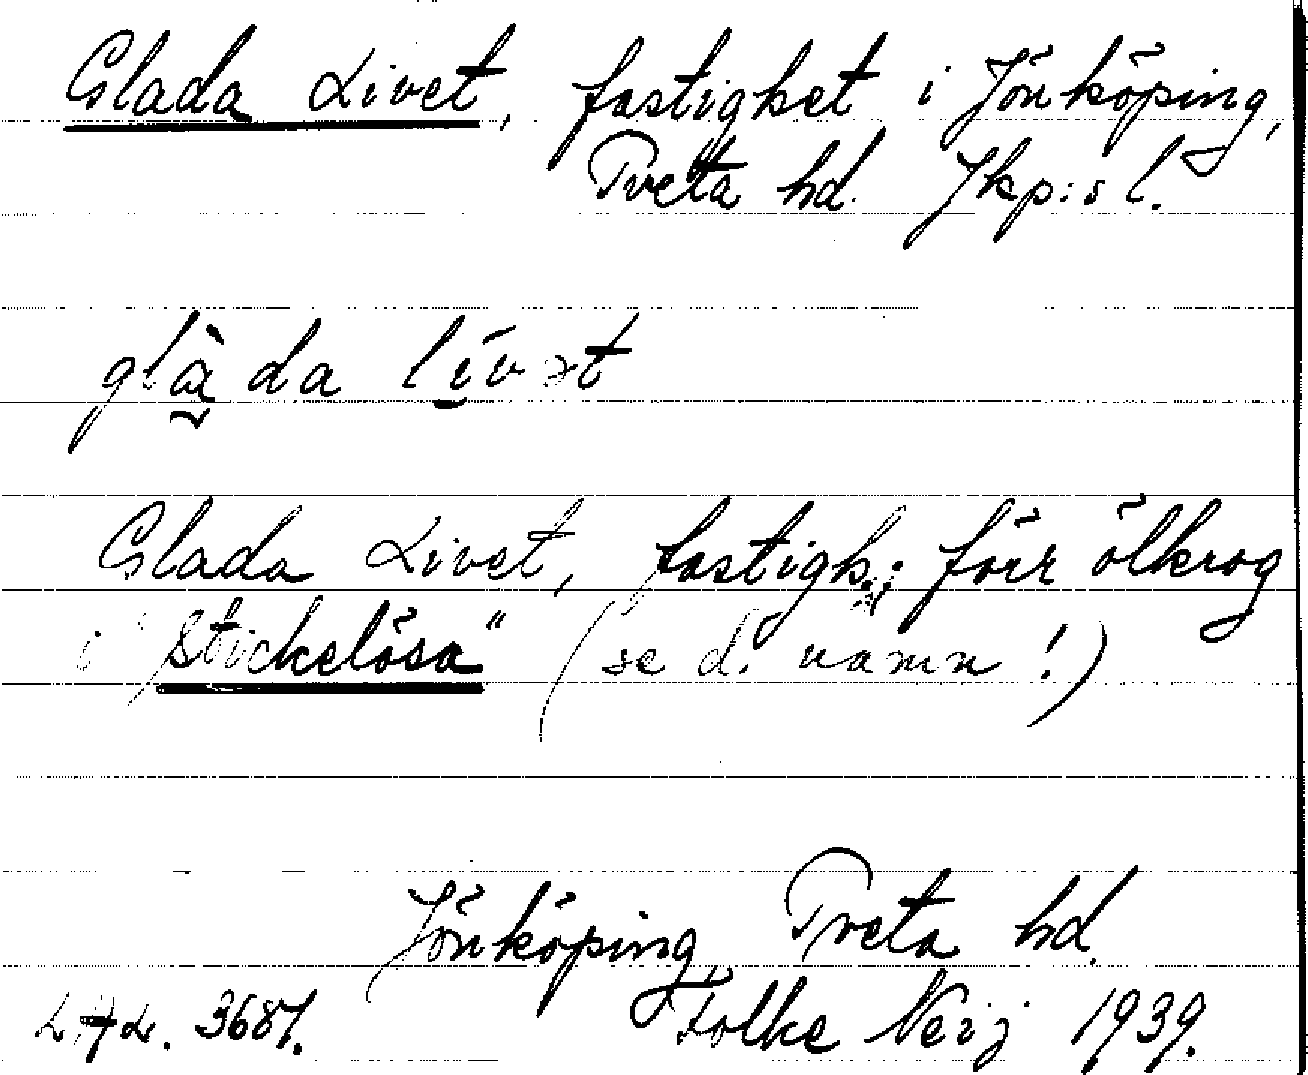 Glada Livet, fastighet i Jönköping,
Tveta hd. Jkp:s l.
glà̰da lívət
Glada Livet, fastigh.; förr ölkrog
i "Stickelösa" (se d. namn!)
Jönköping, Tveta hd.
Folke Neij 1939.
3687.